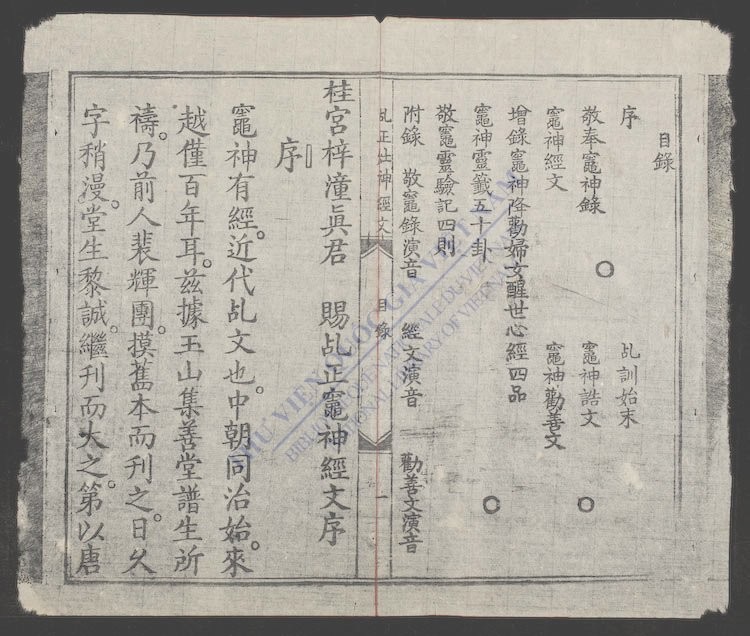 目錄
序 乩訓始末
敬奉竈神錄 ○ 竈神誥文 ○
竈神經文 竈神勸善文
增錄竈神降勸婦女醒世心經四品
竈神靈籤五十卦 ○
敬竈靈驗記四則
附錄 敬竈錄演音 經文演音 勸善文演音
乩正灶神經文 目錄 一
桂宮梓潼眞君 賜乩正竈神經文序
序
竈神有經。近代乩文也。中朝同治始來
越僅百年耳。茲據玉山集善堂譜生所
禱。乃前人裴輝團。摸舊本而刊之。日久
字稍漫。堂生黎誠。繼刊而大之。第以唐
THƯ VIỆN QUỐC GIA VIỆT NAM
BIBLIOTHÈQUE NATIONALE DU VIETNAM
NATIONAL LIBRARY OF VIETNAM